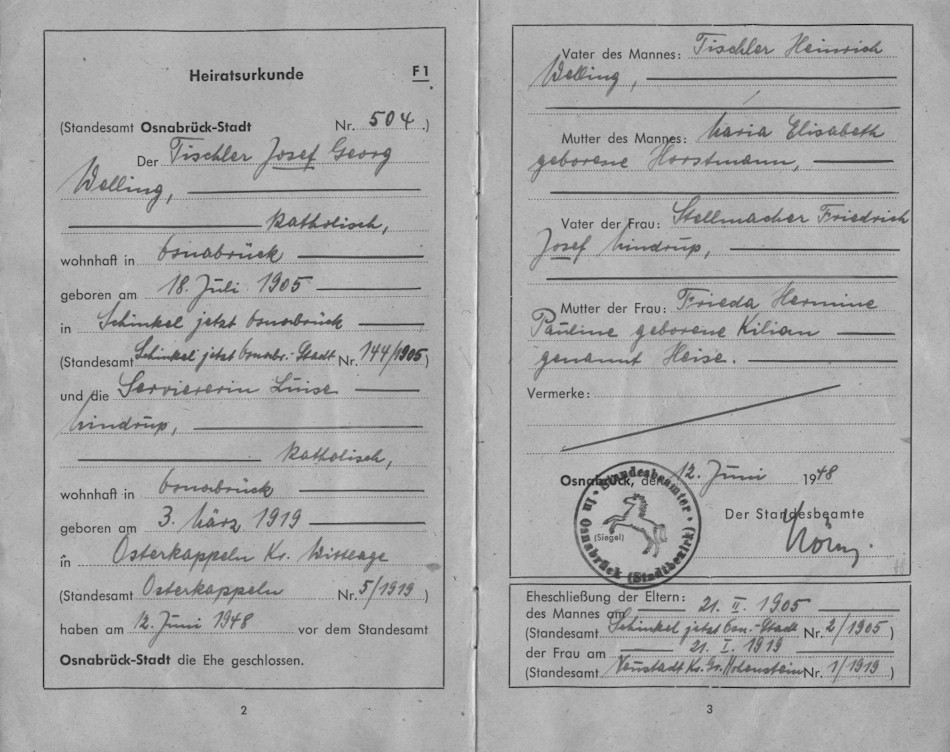 Heiratsurkunde F1
(Standesamt Osnabrück-Stadt Nr. 504.)
Der Tischler Josef Georg
Welling,
katholisch,
wohnhaft in Osnabrück
geboren am 18. Juli 1905
in Schinkel jetzt Osnabrück
(Standesamt Schinkel jetzt Osnabr.-Stadt Nr. 144/1905)
und die Serviererin Luise
Lindrup,
katholisch,
wohnhaft in Osnabrück
geboren am 3. März 1919
in Osterkappeln Kr. Wittlage
(Standesamt Osterkappeln Nr. 5/1919)
haben am 12. Juni 1948 vor dem Standesamt
Osnabrück-Stadt die Ehe geschlossen.
2
Vater des Mannes: Tischler Heinrich
Welling,
Mutter des Mannes: Maria Elisabeth
geborene Horstmann,
Vater der Frau: Stellmacher Friedrich
Josef Lindrup,
Mutter der Frau: Frieda Hermine
Pauline geborene Kilian
genannt Heise.
Vermerke:
Osnabrück, den 12. Juni 1948
Der Standesbeamte
Der Standesbeamte
in Osnabrück (Stadtbezirk)
(Siegel)
Eheschließung der Eltern:
des Mannes am 21. II. 1905
(Standesamt Schinkel jetzt Osn.-Stadt Nr. 2/1905)
der Frau am 21. I. 1919
(Standesamt Neustadt Kr. Gr. Hohenstein Nr. 1/1919)
3